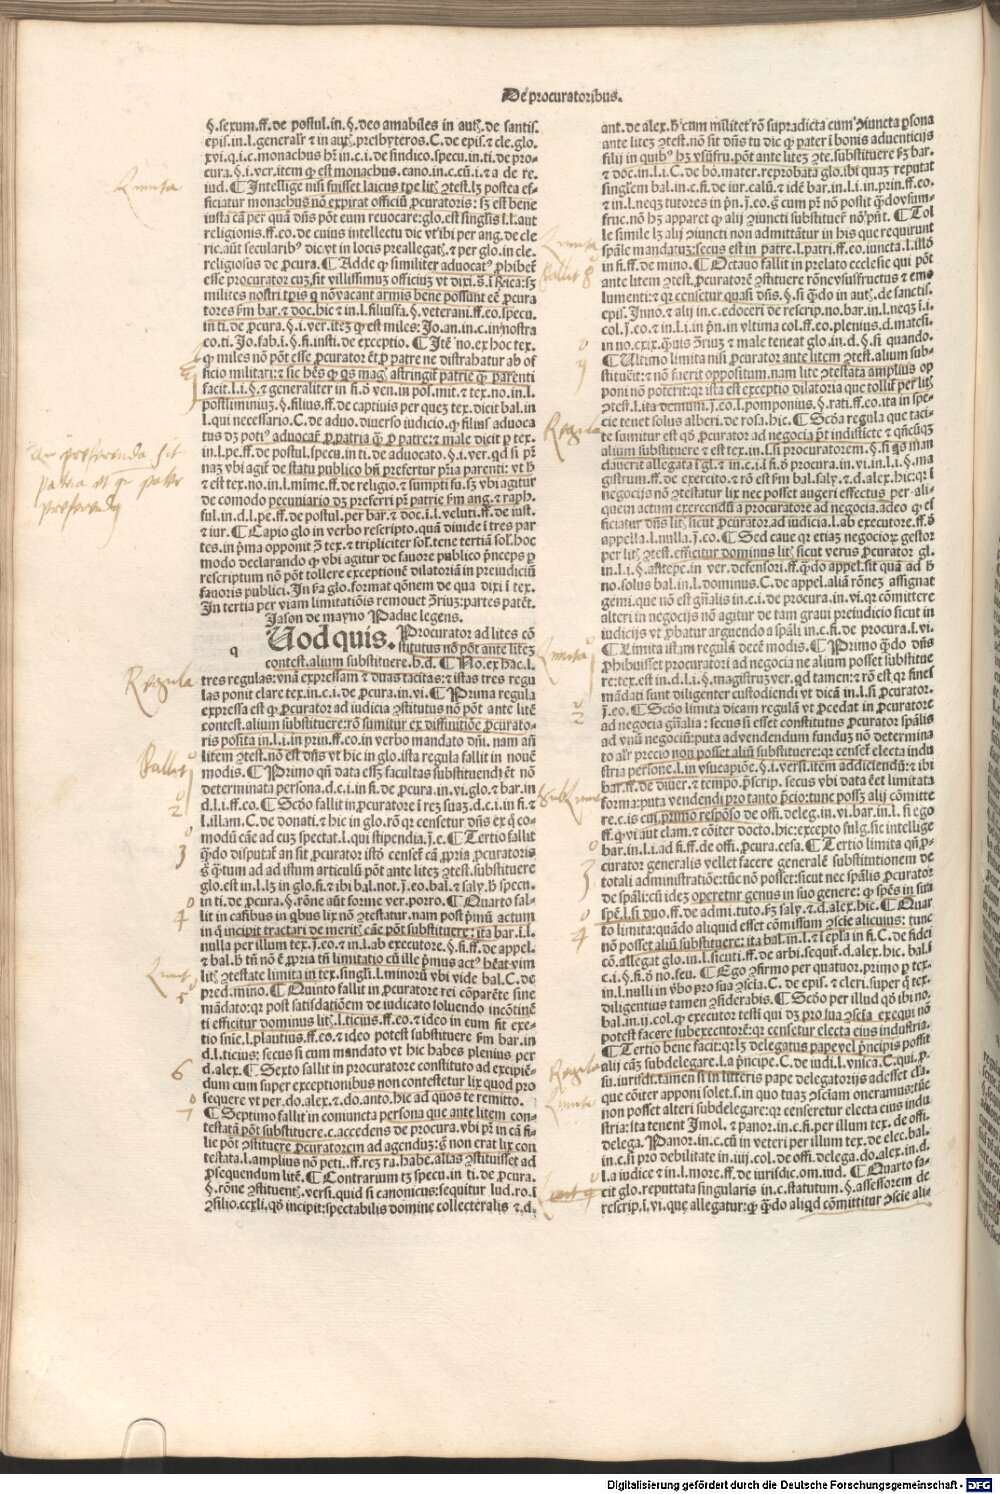 De procuratoribus.
§. sexum. ff. de postul. in. §. deo amabiles in aut. de sanctis.
epis. in. l. generalr̄ ⁊ in aut. presbyteros. C. de epis. ⁊ cle. glo.
xvi. q. i. c. monachus hr̄ in. c. i. de sindico. specu. in. ti. de pro-
cura. §. i. ver. item ꝙ est monachus. cano. in. c. cū. i. ⁊ a de re
iud. ¶ Intellige nisi fuisset laicus tp̄e litꝭ ꝯtest. lꝫ postea ef-
ficiatur monachus nō expirat officiū ꝓcuratoris: sꝫ est bene
iusta cā per quā dn̄s pōt eum reuocare: glo. est singl̄is. l. l. aut
religionis. ff. eo. de cuius intellectu dic vt ibi per ang. de cle
ric. aūt secularibꝰ dic vt in locis preallegatꝭ. ⁊ per glo. in cle.
religiosus de ꝓcura. ¶ Adde ꝙ similiter aduocatꝰ ꝓhibet
esse procurator cuꝫ sit villissimuꝫ officiuꝫ vt dixi. s. i. Rica: sꝫ
milites nostri tꝑis q nō vacant armis bene possunt eē ꝓcura
tores fm̄ bar. ⁊ doc. hic ⁊ in. l. filiusfa. §. veterani. ff. eo. specu.
in ti. de ꝓcura. §. i. ver. iteꝫ ꝙ est miles: Jo. an. in. c. in nostra
eo. ti. Jo. fab. i. §. fi. insti. de exceptio. ¶ Itē no. ex hoc tex.
ꝙ miles nō pōt esse ꝓcurator ēt ꝓ patre ne distrahatur ab of
ficio militari: ⁊ sic hēs ꝙ qs magꝭ astringit̄ patrie ꝙ̄ parenti
facit. l. i. §. ⁊ generaliter in fi. ō ven. in pos. mit. ⁊ tex. no. in. l.
postliminiuꝫ. §. filius. ff. de captiuis per quez tex. dicit bal. in
l. qui necessario. C. de aduo. diuerso iudicio. ꝙ filius aduoca
tus dꝫ potiꝰ aduocare ꝓ patria ꝙ̄ ꝓ patre: ⁊ male dicit ꝑ tex.
in. l. pe. ff. de postul. specu. in ti. de aduocato. §. i. ver. qd si pr̄
naꝫ vbi agit̄ de statu publico bn̄ prefertur pria parenti: vt h̄
⁊ est tex. no. in. l. mime. ff. de religio. ⁊ sumpti fu. sꝫ vbi agitur
de comodo pecuniario dꝫ preferri pr̄ patrie fm̄ ang. ⁊ raph.
ful. in. d. l. pe. ff. de postul. per bar. ⁊ doc. i. l. veluti. ff. de iust.
⁊ iur. ¶ Capio glo in verbo rescripto. quā diuide i tres par
tes. in p̄ma opponit ꝫ tex. ⁊ tripliciter sol. tene tertiā sol. hoc
modo declarando ꝙ vbi agitur de fauore publico p̄nceps ꝑ
rescriptum nō pōt tollere exceptionē dilatoriā in preiudiciū
fauoris publici. In scd̄a glo. format qōnem de qua dixi i tex.
In tertia per viam limitatiōis remouet ꝯriuꝫ: partes patēt.
Jason de mayno Padue legens.
q Uod quis. Procurator ad lites cō
stitutus nō pōt ante liteꝫ
contest. alium substituere. h. d. ¶ No. ex hac. l.
tres regulas: vnā expressam ⁊ duas tacitas: ⁊ istas tres regu
las ponit clare tex. in. c. i. de ꝓcura. in. vi. ¶ Prima regula
expressa est ꝙ ꝓcurator ad iudicia ꝯstitutus nō pōt ante litē
contest. alium substituere: rō sumitur ex diffinitiōe ꝓcurato-
ris posita in. l. i. in prin. ff. eo. in verbo mandato dn̄i. nam an̄
litem ꝯtest. nō est dn̄s vt hic in glo. ista regula fallit in nouē
modis. ¶ Primo qn̄ data essꝫ facultas substituendi ēt nō
determinata persona. d. c. i. in fi. de ꝓcura. in. vi. glo. ⁊ bar. in
d. l. i. ff. eo. ¶ Scd̄o fallit in ꝓcuratore i reꝫ suaꝫ. d. c. i. in fi. ⁊
l. illam. C. de donati. ⁊ hic in glo. rō qr censetur dn̄s ex q̄ co-
modū cāe ad euꝫ spectat. l. qui stipendia. j. e. ¶ Tertio fallit
qn̄do disputat̄ an sit ꝓcurator istō censet̄ cā ꝓpria ꝓcuratoris
§ q̄tum ad ad istum articulū pōt ante liteꝫ ꝯtest. substituere
glo. est in. l. lꝫ in glo. fi. ⁊ ibi bal. not. j. eo. bal. ⁊ saly. h̄ specu.
in ti. de ꝓcura. §. rōne aūt forme ver. porro. ¶ Quarto fal-
lit in casibus in qbus lix nō ꝯtestatur. nam post p̄mū actum
in q̄ incipit tractari de meritꝭ cāe pōt substituere: ita bar. i. l.
nulla per illum tex. j. eo. ⁊ in. l. ab executore. §. fi. ff. de appel.
⁊ bal. h̄ tn̄ nō ē ꝓpria tn̄ limitatio cū ille p̄mus actꝰ hēat vim
litꝭ ꝯtestate limita in tex. singl̄i. l. minorū vbi vide bal. C. de
pred. mino. ¶ Quinto fallit in ꝓcuratore rei cōparēte sine
mādato: qr post satisdatiōem de iudicato soluendo incōtinē
ti efficitur dominus litꝭ. l. ticius. ff. eo. ⁊ ideo in eum fit exe-
tio snīe. l. plautius. ff. eo. ⁊ ideo potest substituere fm̄ bar. in
d. l. ticius: secus si cum mandato vt hic habes plenius per
d. alex. ¶ Sexto fallit in procuratore constituto ad excipiē-
dum cum super exceptionibus non contestetur lix quod pro
sequere vt per. do. alex. ⁊ do. anto. hic ad quos te remitto.
¶ Septimo fallit in coniuncta persona que ante litem con-
testatā pōt substituere. c. accedens de procura. vbi pr̄ in cā fi-
lie pōt ꝯstituere ꝓcuratorem ad agenduꝫ: q̄ non erat lix con
testata. l. amplius nō peti. ff. reꝫ ra. habe. alias ꝯstituisset ad
ꝓsequendum litē. ¶ Contrarium tꝫ specu. in ti. de ꝓcura.
§. rōne ꝯstituentꝭ. versi. quid si canonicus: sequitur lud. ro. i
ꝯsilio. ccxli. qō incipit: spectabilis domine collecteralis ⁊. d.
ant. de alex. h̄ cum militet rō supradicta cum ꝯiuncta ꝑsona
ante liteꝫ ꝯtest. nō sit dn̄s tu dic ꝙ pater i bonis aduenticijs
filij in quibꝰ hꝫ vsūfru. pōt ante liteꝫ ꝯte. substituere fꝫ bar.
⁊ doc. in. l. i. C. de bo. mater. reprobata glo. ibi quaꝫ reputat
singl̄em bal. in. c. fi. de iur. calū. ⁊ idē bar. in. l. i. in. prin. ff. eo.
⁊ in. l. neqꝫ tutores in pn̄. j. eo. q̄ cum pr̄ nō possit qn̄do vsum-
fruc. nō hꝫ apparet ꝙ alij ꝯiuncti substituer̄ nō pn̄t. ¶ Tol
le simile lꝫ alij ꝯiuncti non admittātur in his que requirunt
spāle mandatuꝫ: secus est in patre. l. patri. ff. eo. iuncta. l. illō
in fi. ff. de mino. ¶ Octauo fallit in prelato ecclesie qui pōt
ante litem ꝯtest. ꝓcuratorē ꝯstituere rōne vsusfructus ⁊ emo
lumenti: ⁊ qr censetur quasi dn̄s. §. si qn̄do in aut. de sanctis.
epis. Inno. ⁊ alij in. c. edoceri de rescrip. no. bar. in. l. neqꝫ i. i.
col. j. eo. ⁊ in. l. i. in pn̄. in vltima col. ff. eo. plenius. d. matesi.
in no. cxix. ꝙuis ꝯriuꝫ ⁊ male teneat glo. in. d. §. si quando.
¶ Ultimo limita nisi ꝓcurator ante litem ꝯtest. alium sub-
stituerit: ⁊ nō fuerit oppositum. nam lite ꝯtestata amplius op
poni nō poterit: qr ista est exceptio dilatoria que tollit̄ per litꝭ
ꝯtest. l. ita demum. j. eo. l. pomponius. §. rati. ff. eo. ita in spe-
cie tenet solus alberi. de rosa. hic. ¶ Scd̄a regula que taci-
te sumitur est qō ꝓcurator ad negocia pōt indisticte ⁊ qn̄cūqꝫ
alium substituere ⁊ est tex. in. l. si procuratorem. §. si qs man
dauerit allegata i gl. ⁊ in. c. i. i fi. ō procura. in. vi. in. l. i. §. ma
gistrum. ff. de exercito. ⁊ rō est fm̄ bal. saly. ⁊. d. alex. hic: qr i
negocijs nō ꝯtestatur lix nec posset augeri effectus per ali-
quem actum exercendū a procuratore ad negocia. adeo ꝙ ef
ficiatur dn̄s litꝭ sicut ꝓcurator ad iudicia. l. ab executore. ff. ō
appella. l. nulla. j. eo. ¶ Sed caue qr etiaꝫ negocioꝝ gestor
per litꝭ ꝯtest. efficitur dominus litꝭ sicut verus ꝓcurator gl.
in. l. i. §. assitepe. in ver. defensori. ff. qn̄do appel. sit quā ad h̄
no. solus bal. in. l. dominus. C. de appel. aliā rōneꝫ assignat
gemi. que nō est gn̄alis in. c. i. de procura. in. vi. qr cōmittere
alteri in negocijs nō agitur de tam graui preiudicio sicut in
iudicijs vt ꝓbatur arguendo a spāli in. c. fi. de procura. i. vi.
¶ Limita istam regulā decē modis. ¶ Primo qn̄do dn̄s
ꝓhibuisset procuratori ad negocia ne alium posset substitue
re: tex. est in. d. l. i. §. magistruꝫ ver. qd tamen: ⁊ rō est qr fines
mādati sunt diligenter custodiendi vt dicā in. l. si ꝓcurator.
j. eo. ¶ Scd̄o limita dicam regulā vt ꝓcedat in ꝓcuratore
ad negocia gn̄alia: secus si esset constitutus ꝓcurator spālis
ad vnū negociū: puta ad vendendum funduꝫ nō determina
to alr̄ precio non posset aliū substituere: qr censet̄ electa indu
stria persone. l. in vsucapiōe. §. i. versi. item addiciendū: ⁊ ibi
bar. ff. de diuer. ⁊ tempo. p̄scrip. secus vbi data eēt limitata
forma: puta vendendi pro tanto p̄cio: tunc possꝫ alij cōmitte
re. c. is cui. primo respōso de offi. deleg. in. vi. bar. in. l. si ego
ff. q. vi aut clam. ⁊ cōiter docto. hic: excepto fulg. sic intellige
bar. in. l. i. ad fi. ff. de offi. ꝓcura. cesa. ¶ Tertio limita qn̄ ꝓ-
curator generalis vellet facere generalē substitutionem de
totali administratiōe: tūc nō posset: sicut nec spālis ꝓcurator
de spāli: cū ideꝫ operetnr genus in suo genere: ꝙ spēs in sua
spē. l. si duo. ff. de admi. tuto. fꝫ saly. ⁊. d. alex. hic. ¶ Quar
to limita: quādo aliquid esset cōmissum ꝯscie alicuius: tunc
nō posset aliū substituere: ita bal. in. l. ⁊ l epl̄a in fi. C. de fidei
cō. allegat glo. in. l. sicuti. ff. de arbi. sequit̄. d. alex. hic. bal. i
c. i. §. fi. ō no. feu. ¶ Ego ꝯfirmo per quatuor. primo ꝑ tex.
in. l. nulli in vbo pro sua ꝯscia. C. de epis. ⁊ cleri. super q̄ tex.
diligentius tamen ꝯsiderabis. ¶ Scd̄o per illud qō ibi no.
bal. in. ij. col. ꝙ executor testi qui dꝫ pro sua ꝯscia exequi nō
potest facere subexecutorē: qr censetur electa eius industria.
¶ Tertio bene facit: qr lꝫ delegatus pape vel p̄ncipis possit
alij cāꝫ subdelegare. l. a p̄ncipe. C. de iudi. l. vnica. C. qui. ꝓ.
su. iurisdi. tamen si in litteris pape delegatorijs adesset cla.
que cōiter apponi solet. s. in quo tuaꝫ ꝯsciam oneramus: tūc
non posset alteri subdelegare: qr censeretur electa eius indu
stria: ita tenent Imol. ⁊ panor. in. c. fi. per illum tex. de offi.
delega. Panor. in. c. cū in veteri per illum tex. de elec. bal.
in. c. si pro debilitate in. iiij. col. de offi. delega. do. alex. in. d.
l. a iudice ⁊ in. l. more. ff. de iurisdic. om. iud. ¶ Quarto fa-
cit glo. reputata singularis in. c. statutum. §. assessorem de
rescrip. i. vi. que allegatur: ꝙ qn̄do aliqd cōmittitur ꝯscie ali-
Limita
An preferenda sit
patria et qn̄ pater
preferendus
Regula
Fallit
2
3
4
Limit
5
6
7
Limita
Fallit 8
9
Regula
Limita
2
3
4
Regula
Limita
Digitalisierung gefördert durch die Deutsche Forschungsgemeinschaft - DFG